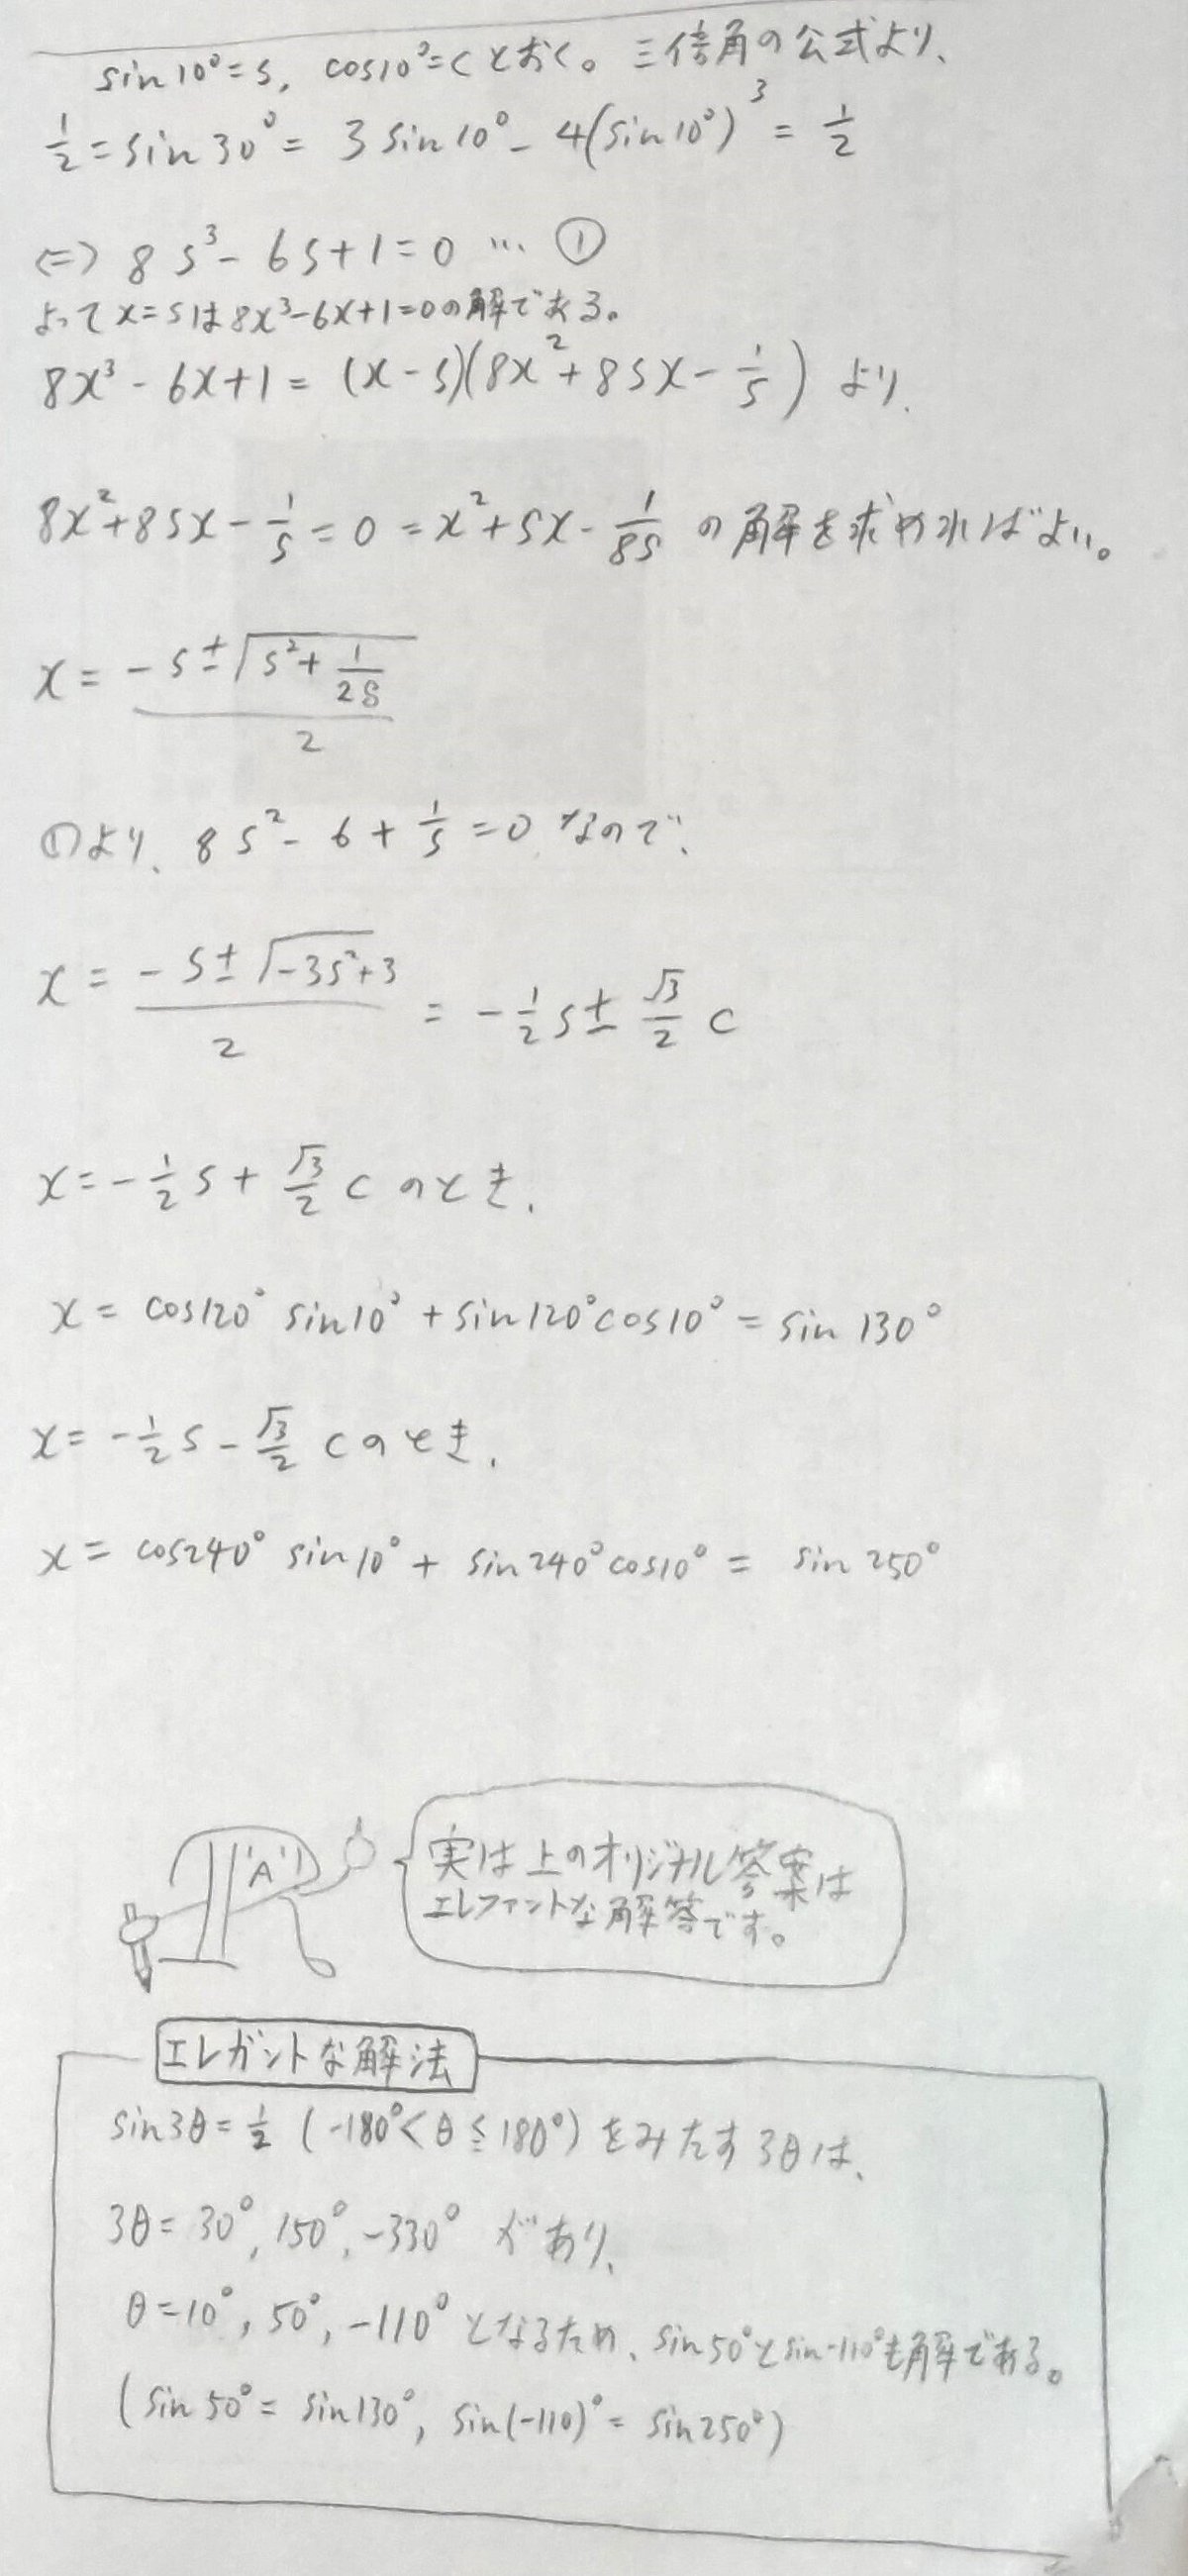 sin10°=s, cos10°=cとおく。三倍角の公式より、
1/2=sin30°=3sin10°-4(sin10°)³=1/2
⇔ 8s³-6s+1=0 … ①
よってx=sは8x³-6x+1=0の解である。
8x³-6x+1=(x-s)(8x²+8sx-1/s) より、
8x²+8sx-1/s=0=x²+sx-1/8s の解を求めればよい。
x=(-s±√(s²+1/2s))/2
①より、8s²-6+1/s=0 なので、
x=(-s±√(-3s²+3))/2=-1/2s±√3/2c
x=-1/2s+√3/2cのとき、
x=cos120°sin10°+sin120°cos10°=sin130°
x=-1/2s-√3/2cのとき、
x=cos240°sin10°+sin240°cos10°=sin250°
'A'
実は上のオリジナル答案は
エレファントな解答です。
エレガントな解法
sin3θ=1/2 (-180°<θ≦180°)をみたす3θは、
3θ=30°,150°,-330° があり、
θ=10°,50°,-110°となるため、sin50°とsin-110°も解である。
(sin50°=sin130°, sin(-110)°=sin250°)